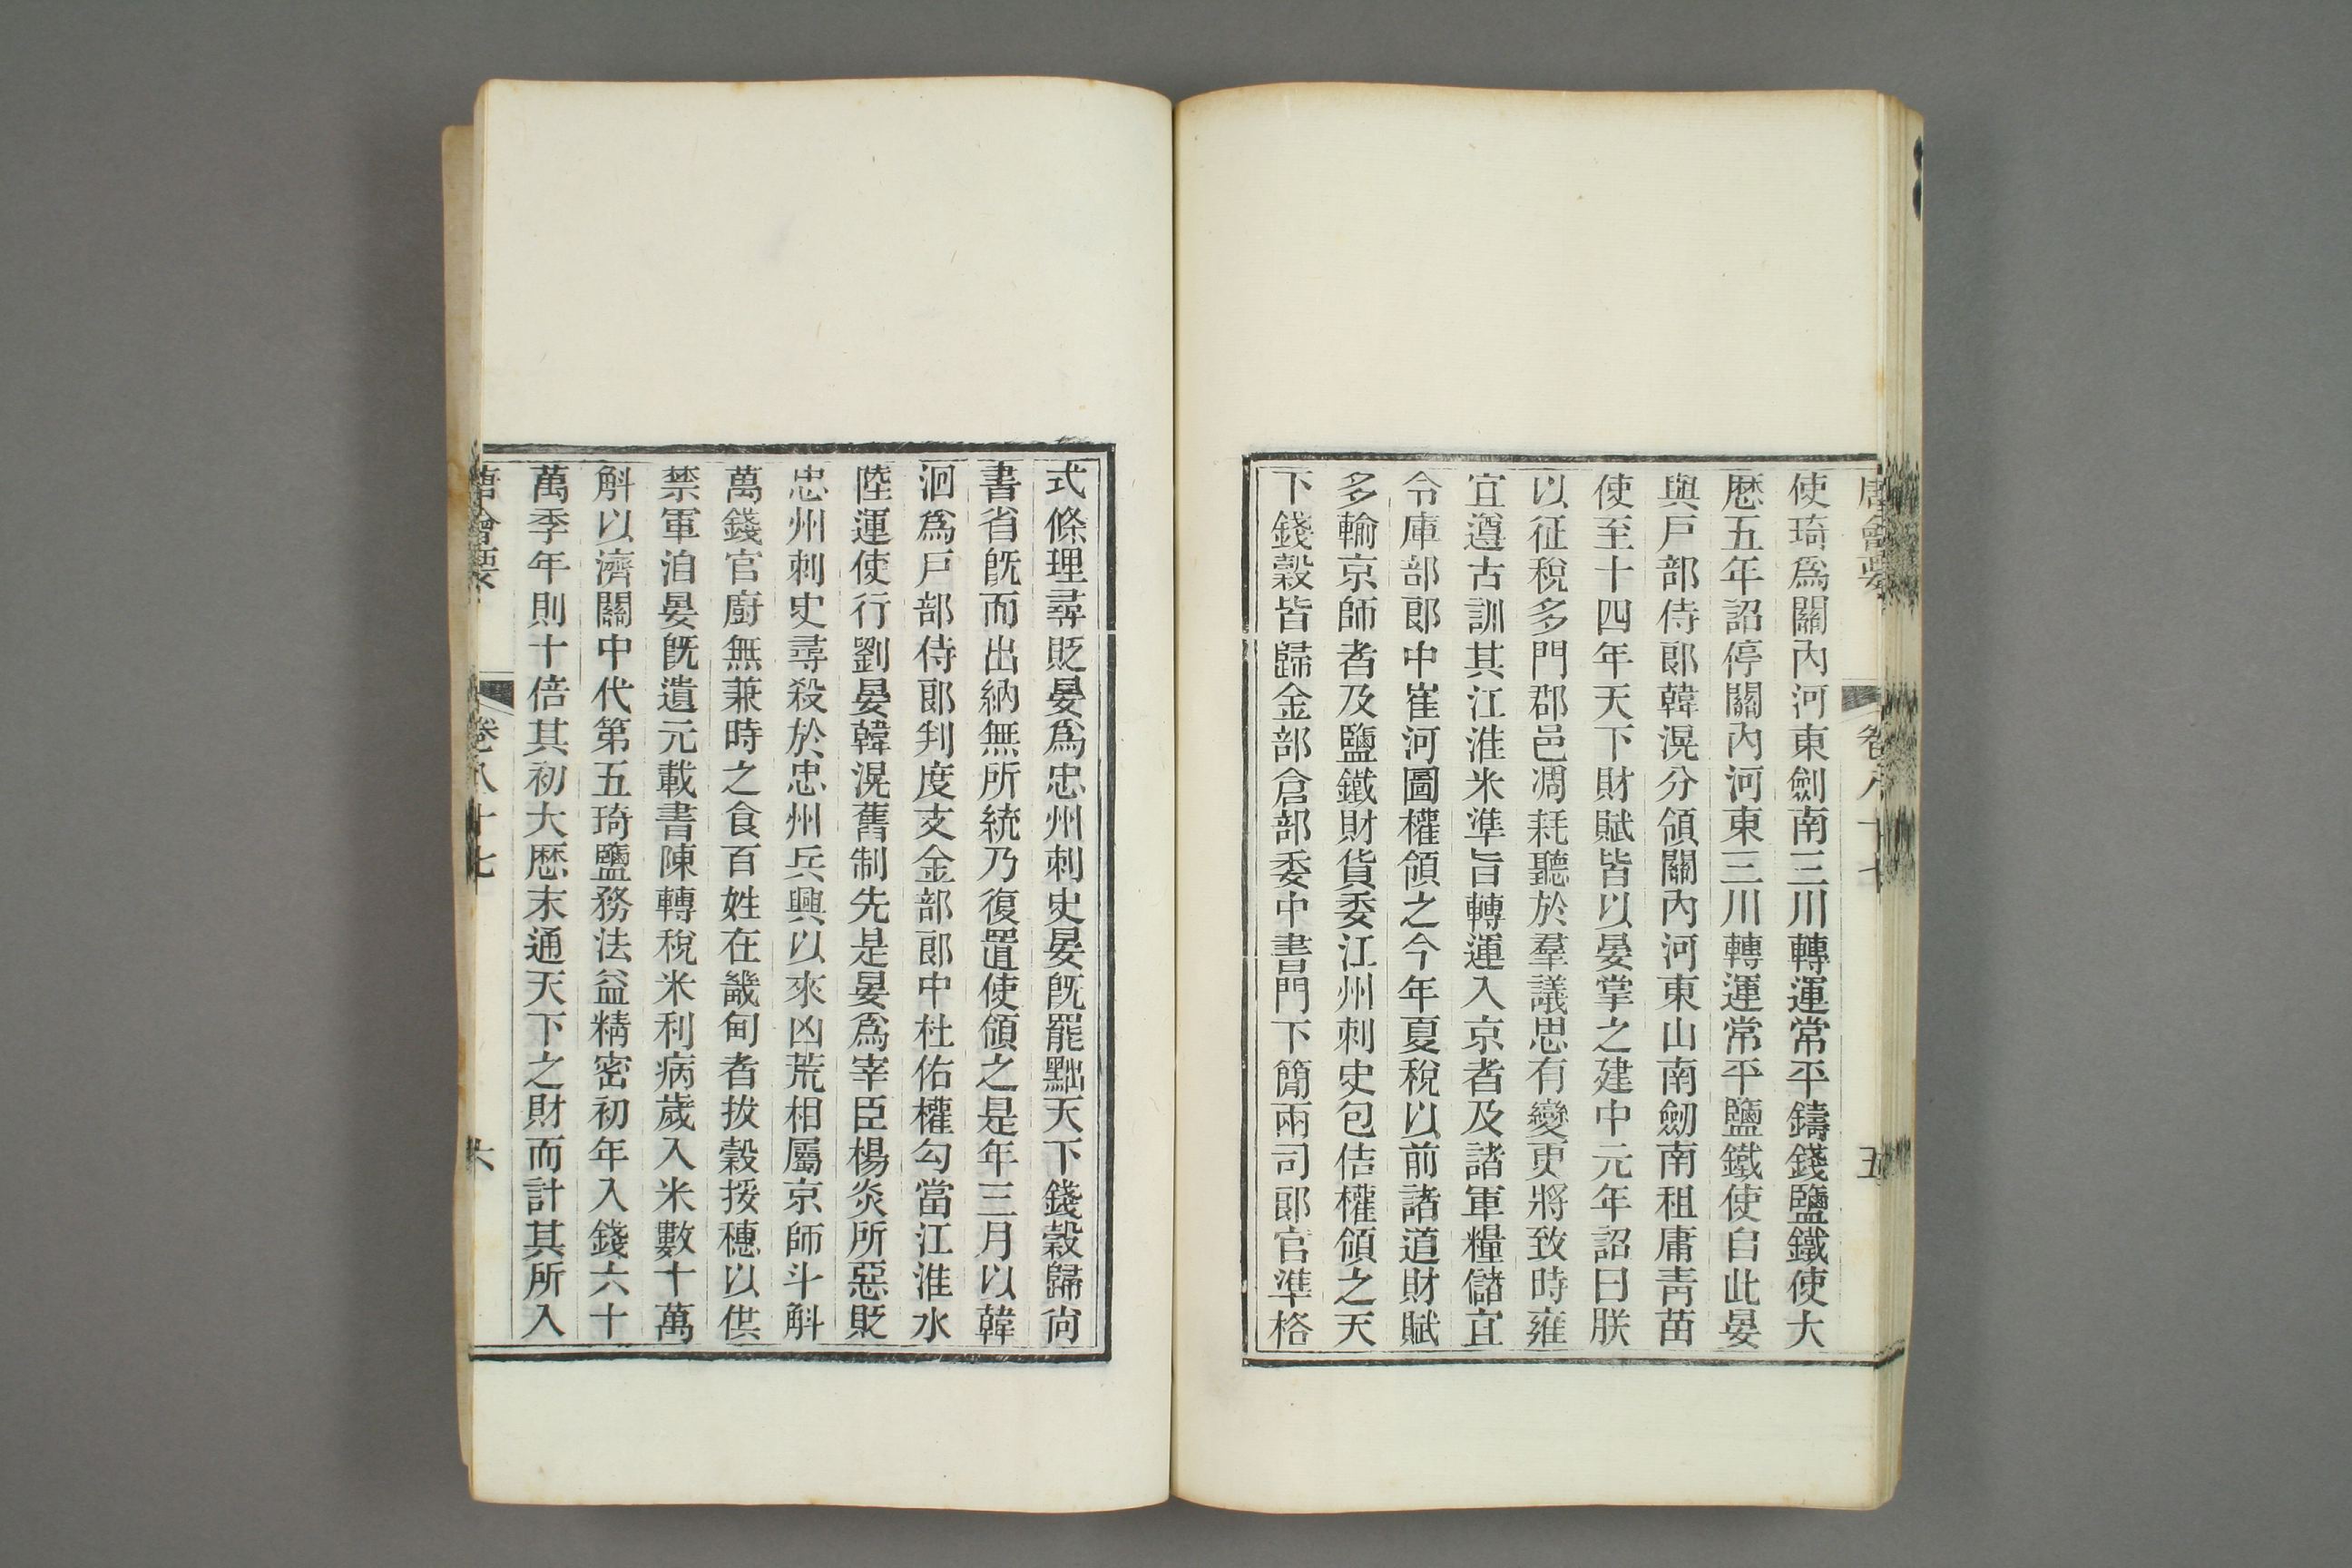 唐會要 卷八十七 五
使琦爲關內河東劍南三川轉運常平鑄錢鹽鐵使大
歷五年詔停關內河東三川轉運常平鹽鐵使自此晏
與戶部侍郎韓滉分領關內河東山南劒南租庸靑苗
使至十四年天下財賦皆以晏掌之建中元年詔曰朕
以征稅多門郡邑凋耗聽於羣議思有變更將致時雍
宜遵古訓其江淮米準旨轉運入京者及諸軍糧儲宜
令庫部郎中崔河圖權領之今年夏稅以前諸道財賦
多輸京師者及鹽鐵財貨委江州刺史包佶權領之天
下錢穀皆歸金部倉部委中書門下簡兩司郎官準格
式條理尋貶晏爲忠州刺史晏旣罷黜天下錢穀歸尙
書省旣而出納無所統乃復置使領之是年三月以韓
洄爲戶部侍郎判度支金部郎中杜佑權勾當江淮水
陸運使行劉晏韓滉舊制先是晏爲宰臣楊炎所惡貶
忠州刺史尋殺於忠州兵興以來凶荒相屬京師斗斛
萬錢官廚無兼時之食百姓在畿甸者拔穀挼穗以供
禁軍洎晏旣遺元載書陳轉稅米利病歲入米數十萬
斛以濟關中代第五琦鹽務法益精密初年入錢六十
萬季年則十倍其初大歷末通天下之財而計其所入
唐會要 卷八十七 六